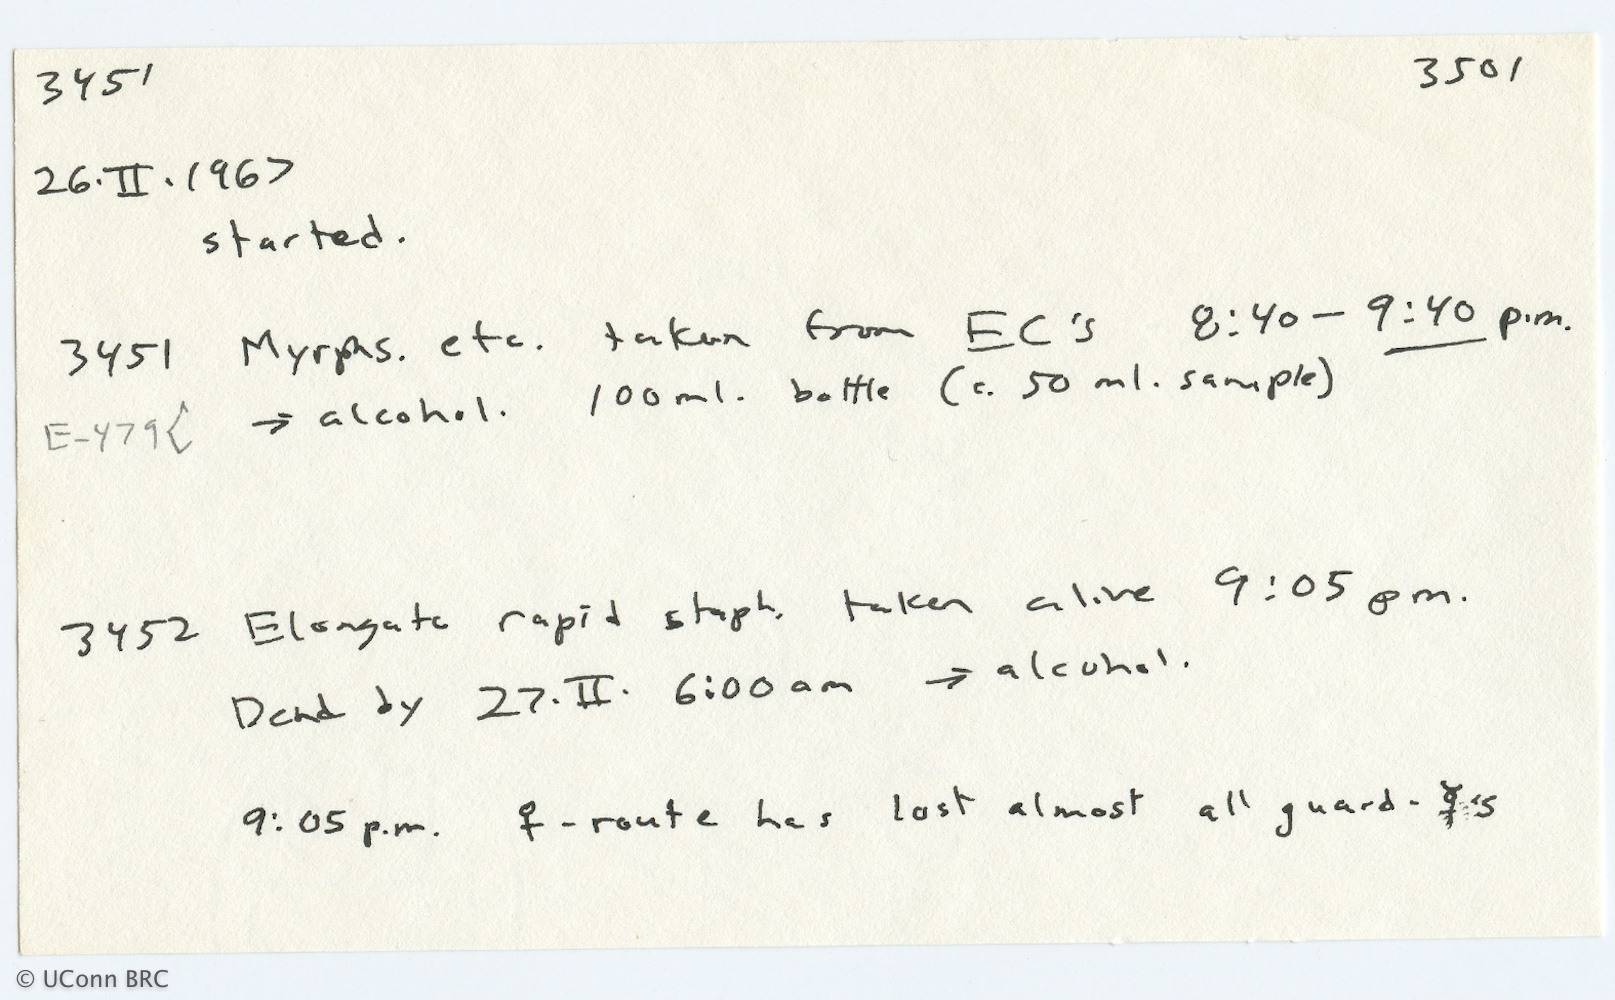 3451 3501
26.II.1967
started.
3451 Myrphs. etc. taken from EC's 8:40 - 9:40 p.m.
E-479 → alcohol. 100 ml. bottle (c. 50 ml. sample)
3452 Elongate rapid staph. taken alive 9:05 pm.
Dead by 27.II. 6:00 am → alcohol.
9:05 p.m. ☿-route has lost almost all guard-☿'s
© UConn BRC